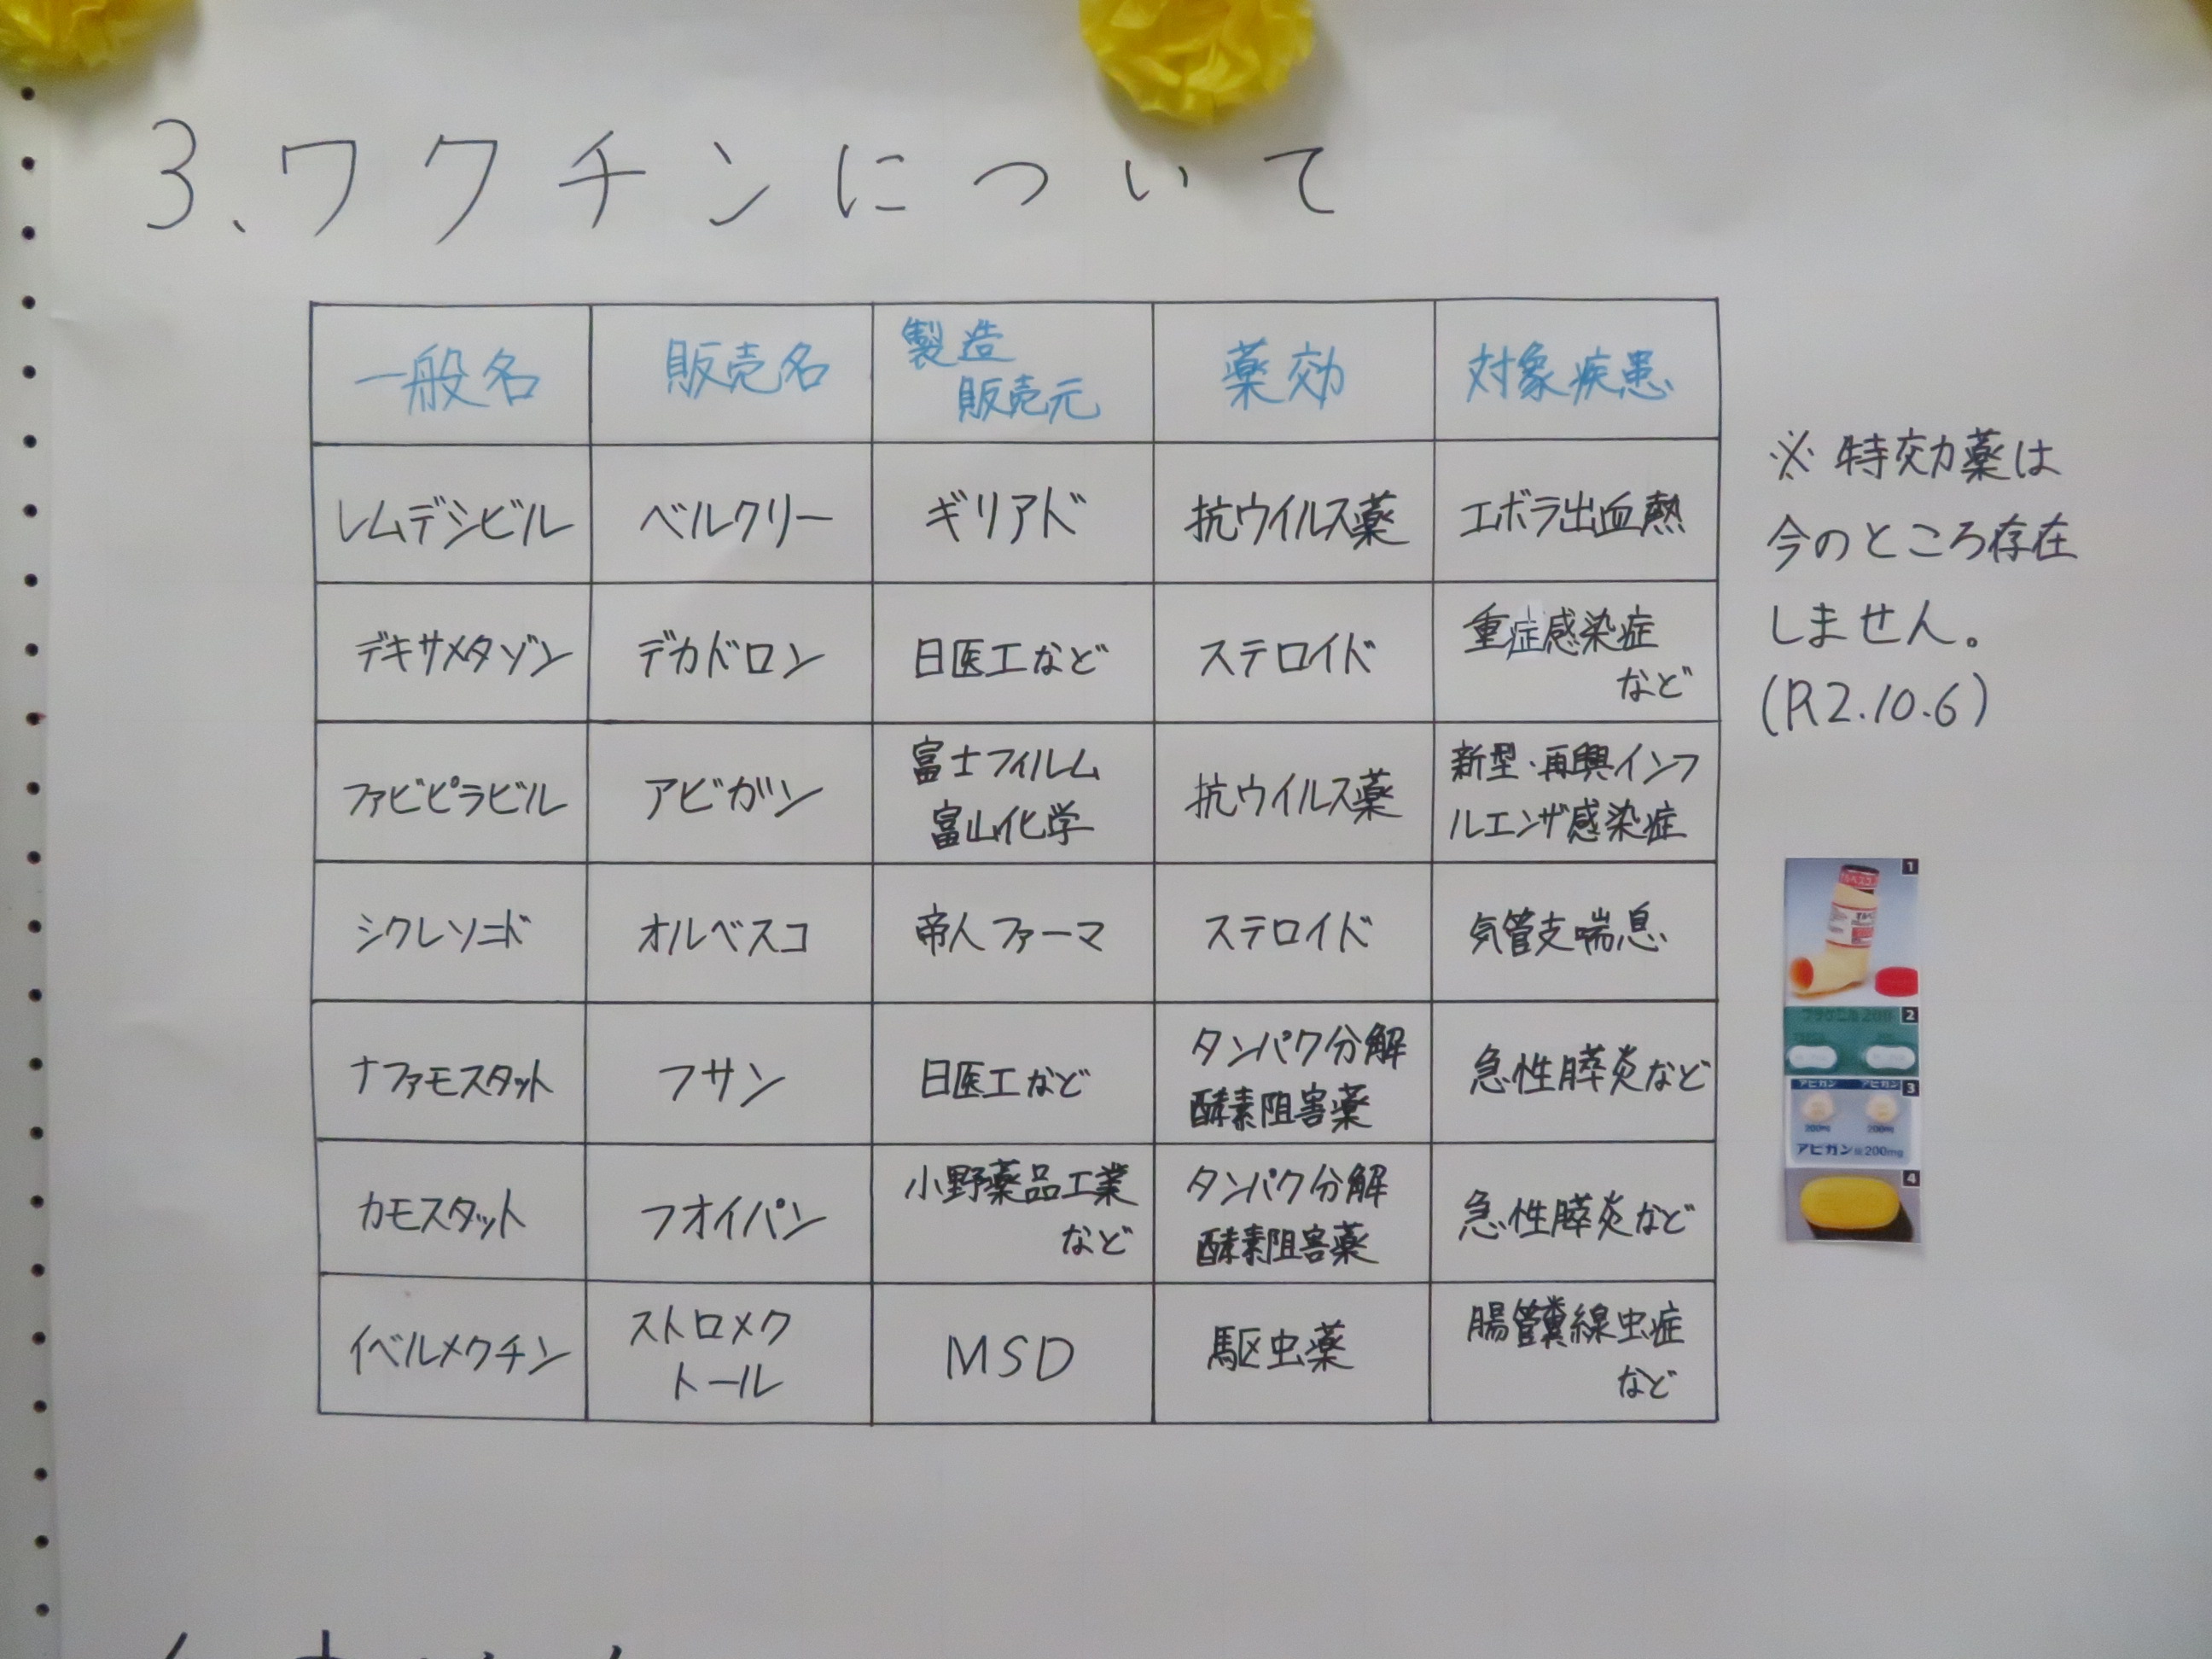 3、ワクチンについて
一般名 販売名 製造 販売元 薬効 対象疾患
レムデシビル ベルクリー ギリアド 抗ウイルス薬 エボラ出血熱
デキサメタゾン デカドロン 日医工など ステロイド 重症感染症 など
ファビピラビル アビガン 富士フィルム 富山化学 抗ウイルス薬 新型・再興インフ ルエンザ感染症
シクレソニド オルベスコ 帝人ファーマ ステロイド 気管支喘息
ナファモスタット フサン 日医工など タンパク分解 酵素阻害薬 急性膵炎など
カモスタット フオイパン 小野薬品工業 など タンパク分解 酵素阻害薬 急性膵炎など
イベルメクチン ストロメク トール MSD 駆虫薬 腸管糞線虫症 など
※特効薬は
今のところ存在
しません。
(R2.10.6)
1
2
3
アビガン アビガン
200mg 200mg
アビガン錠200mg
4